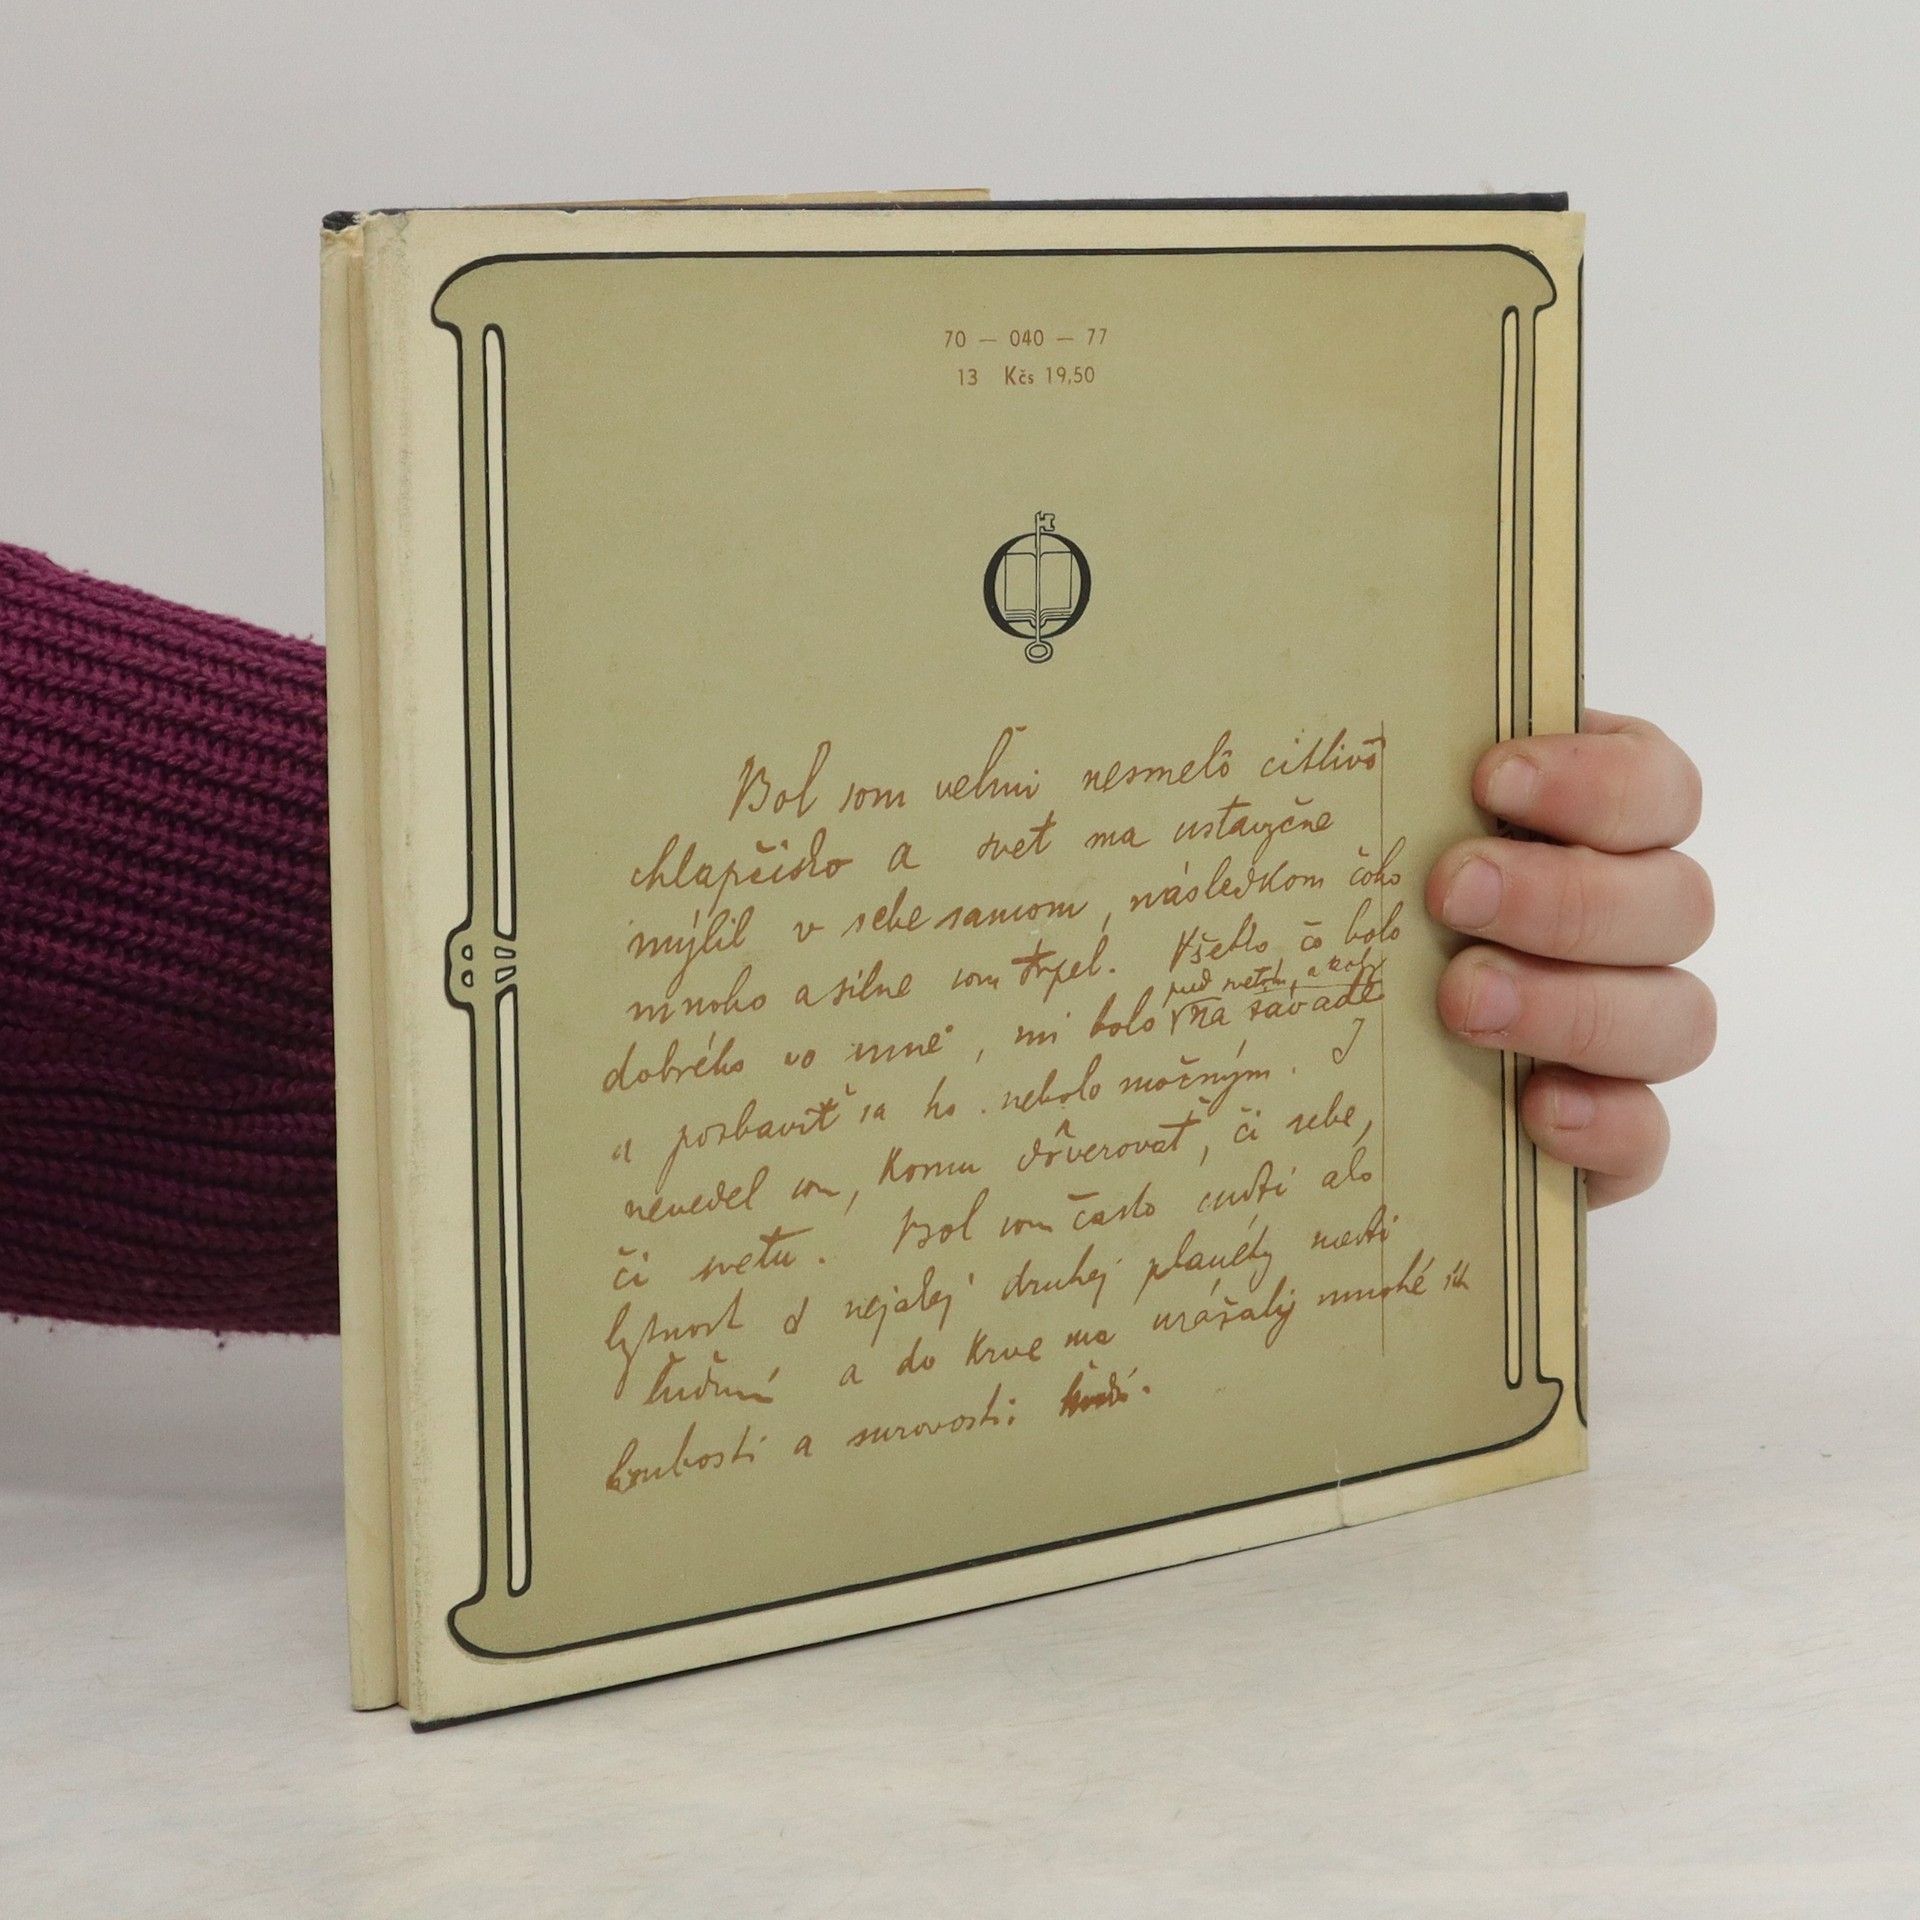 70 — 040 — 77
13 Kčs 19,50
Bol som veľmi nesmelô citlivô
chlapčisko a svet ma ustavyčne
mýlil v sebe samom, následkom čoho
mnoho a silne som trpel. Všetko, čo bolo
pred svetom, a
dobrého vo mne, mi bolo na závade
a pozbaviť sa ho nebolo možným. I
nevedel som, komu dôverovať, či sebe,
či svetu. Bol som často cudzí ako
bytnosť z nejakej druhej planéty medzi
ľuďmi a do krve ma urážaly mnohé ich
hrubosti a surovosti